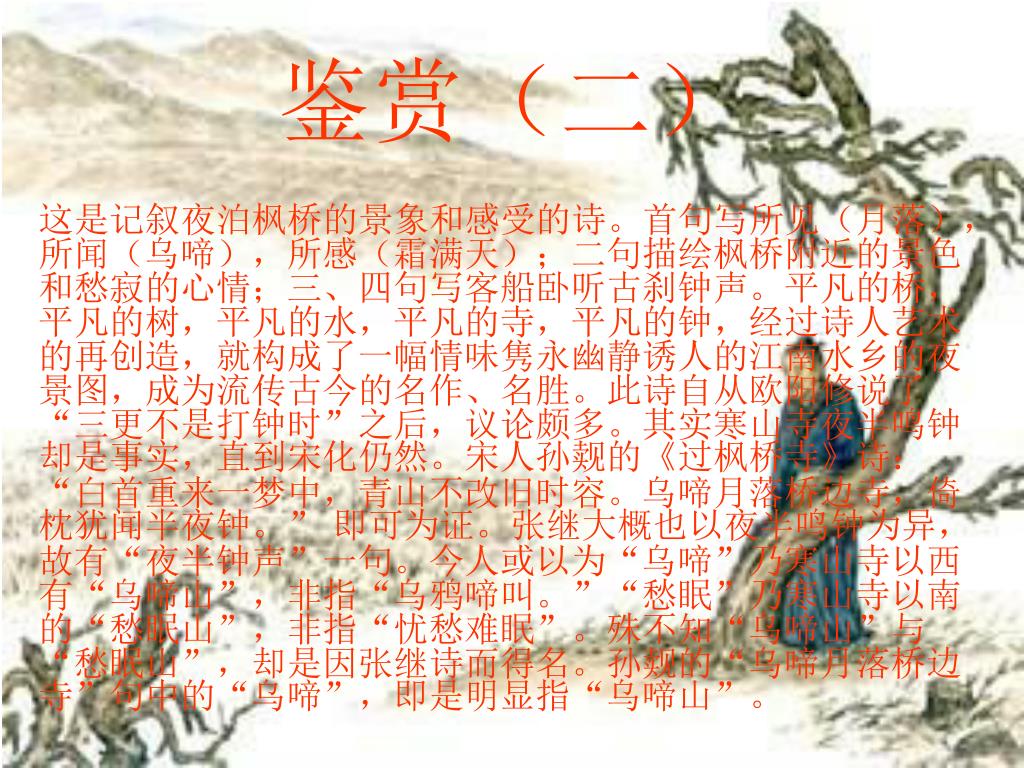 鉴赏（二）
这是记叙夜泊枫桥的景象和感受的诗。首句写所见（月落），
所闻（乌啼），所感（霜满天）；二句描绘枫桥附近的景色
和愁寂的心情；三、四句写客船卧听古刹钟声。平凡的桥，
平凡的树，平凡的水，平凡的寺，平凡的钟，经过诗人艺术
的再创造，就构成了一幅情味隽永幽静诱人的江南水乡的夜
景图，成为流传古今的名作、名胜。此诗自从欧阳修说了
“三更不是打钟时”之后，议论颇多。其实寒山寺夜半鸣钟
却是事实，直到宋化仍然。宋人孙觌的《过枫桥寺》诗：
“白首重来一梦中，青山不改旧时容。乌啼月落桥边寺，倚
枕犹闻半夜钟。” 即可为证。张继大概也以夜半鸣钟为异，
故有“夜半钟声”一句。今人或以为“乌啼”乃寒山寺以西
有“乌啼山”，非指“乌鸦啼叫。”“愁眠”乃寒山寺以南
的“愁眠山”，非指“忧愁难眠”。殊不知“乌啼山”与
“愁眠山”，却是因张继诗而得名。孙觌的“乌啼月落桥边
寺”句中的“乌啼”，即是明显指“乌啼山”。